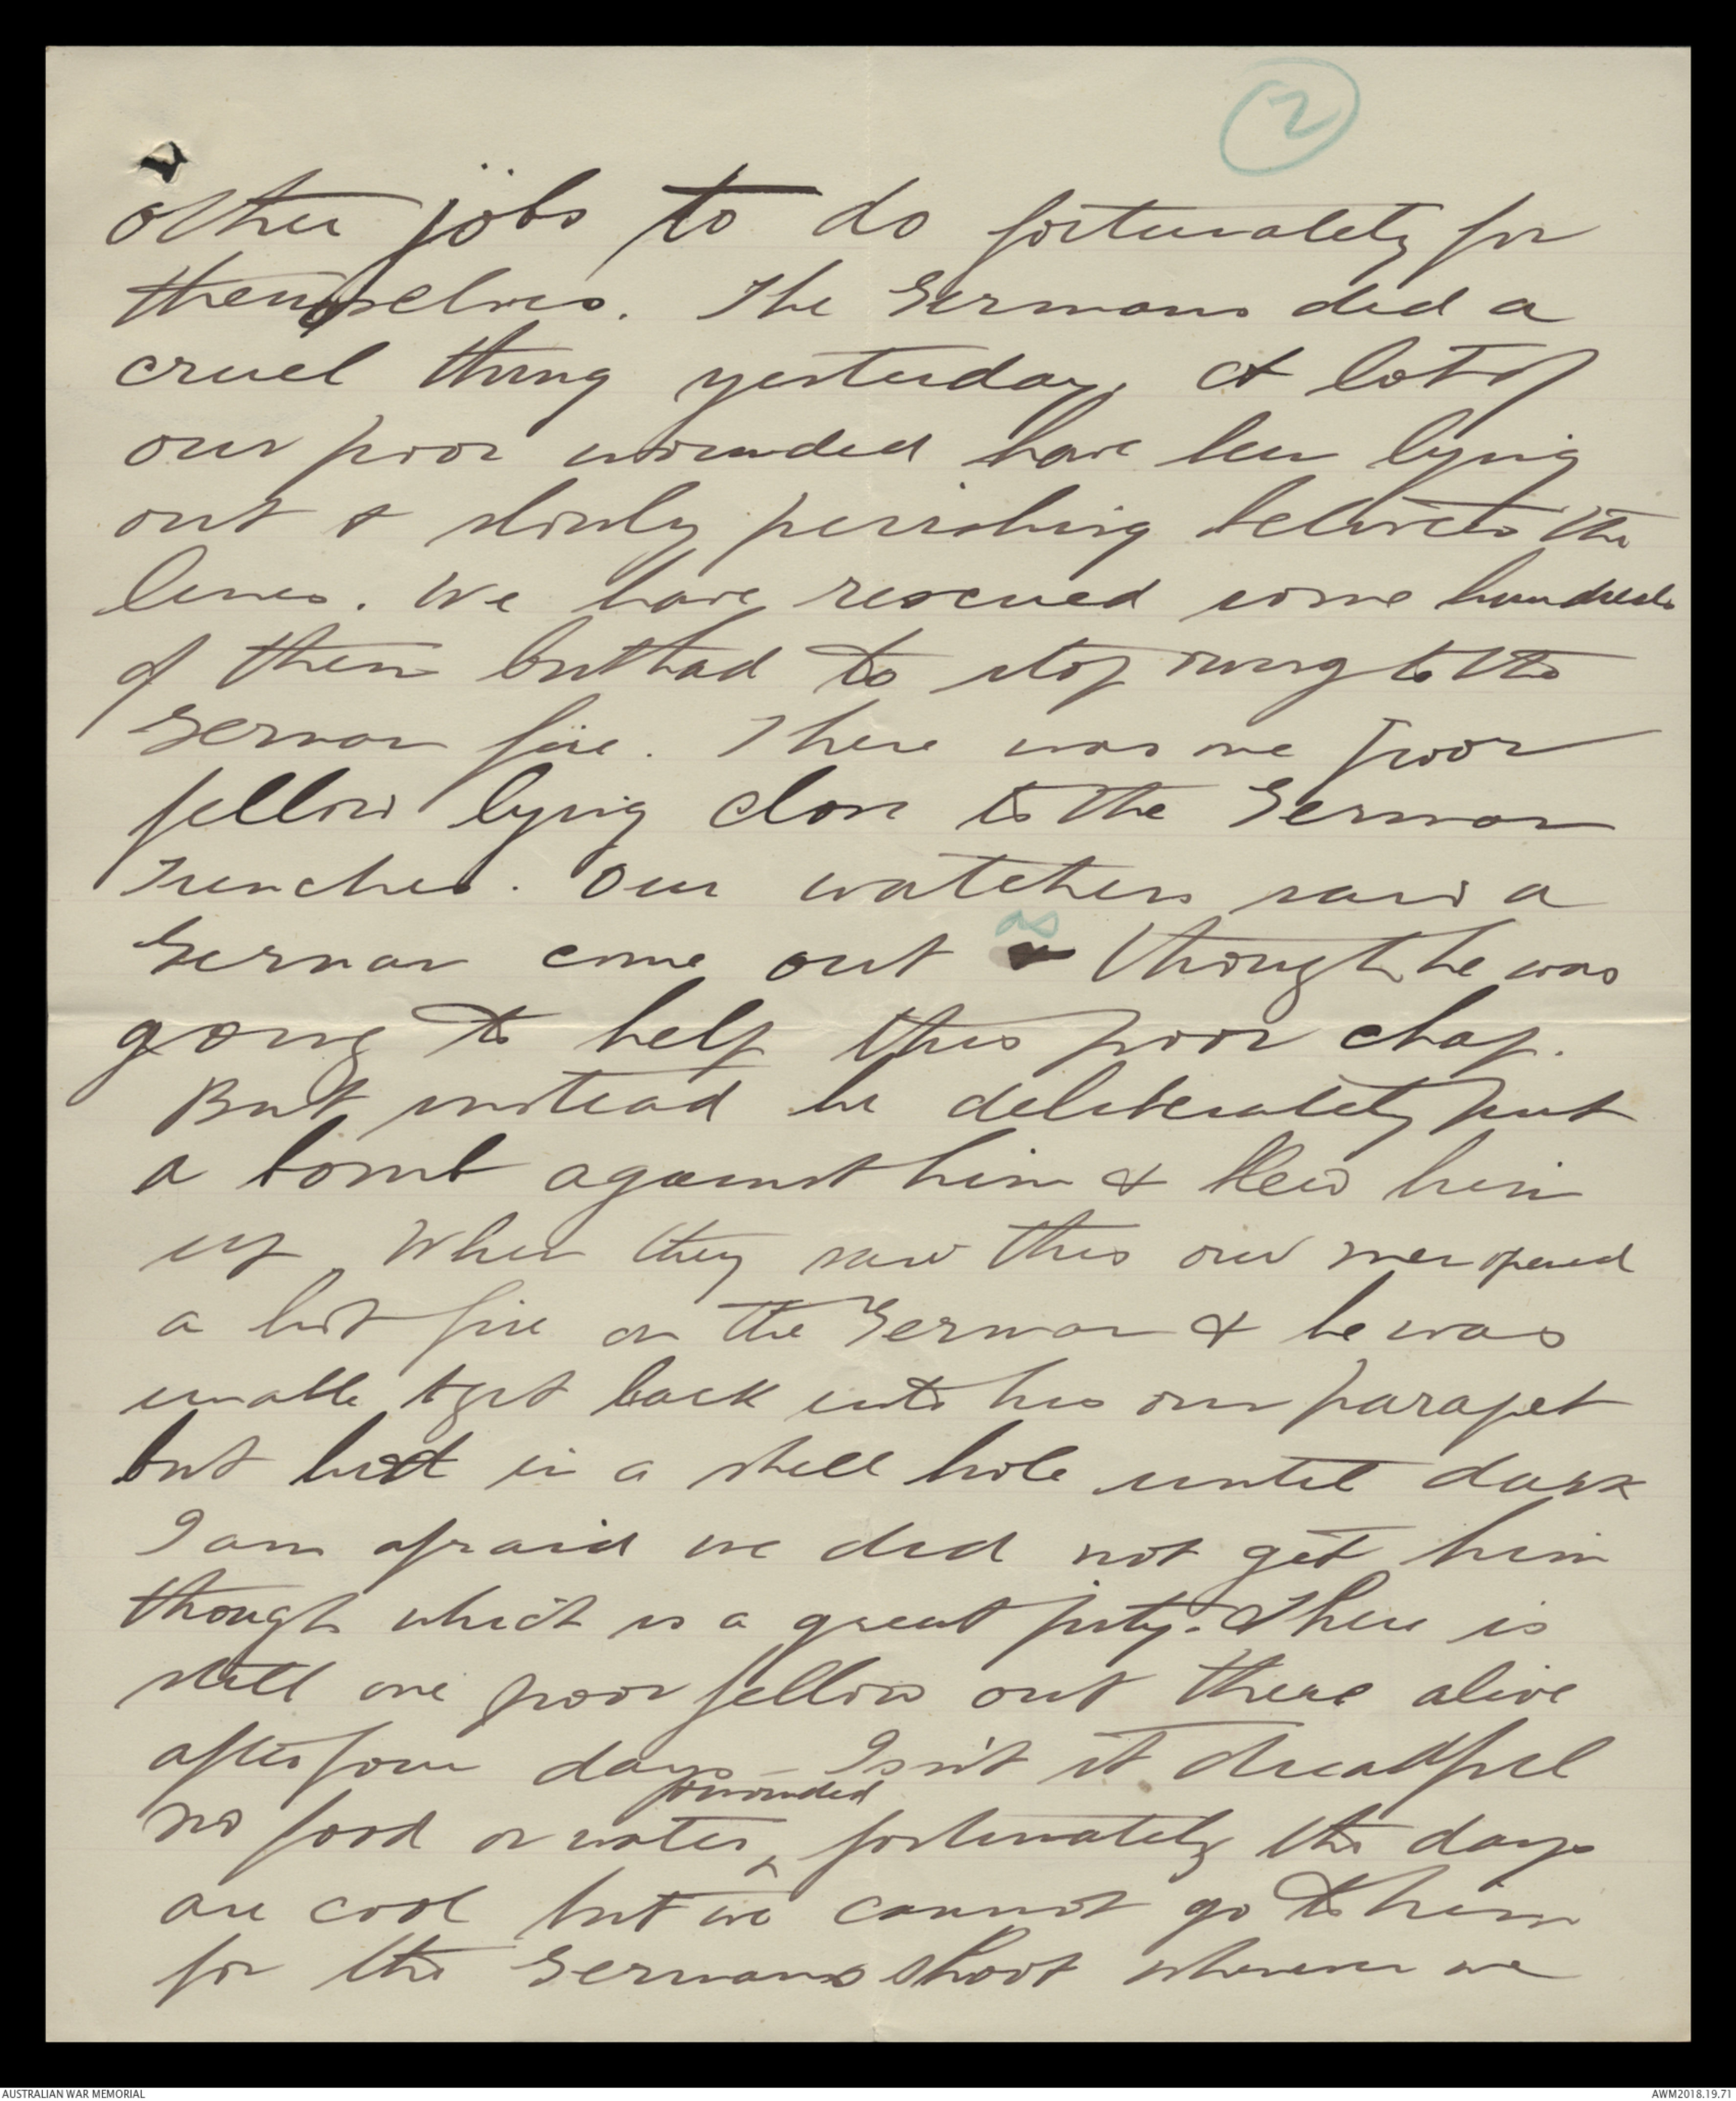 2
other jobs to do fortunately for
themselves. The Germans did a
cruel thing yesterday. A lot of
our poor wounded have been lying
out & slowly perishing between the
lines. We have rescued some hundreds
of them but had to stop owing to the
German fire. There was one poor
fellow lying close to the German
Trenches. Our watchers saw a
German come out as though he was
going to help this poor chap.
But instead he deliberately put
a bomb against him & blew him
up. When they saw this our men opened
a hot fire on the German & he was
unable to get back into his own parapet
but hid in a shell hole until dark
I am afraid we did not get him
though which is a great pity. There is
still one poor fellow out there alive
after four days – Isn't it dreadful
wounded
no food or water, fortunately the days
are cool but we cannot go to him
for the Germans shoot whenever we
AUSTRALIAN WAR MEMORIAL
AWM2018.19.71